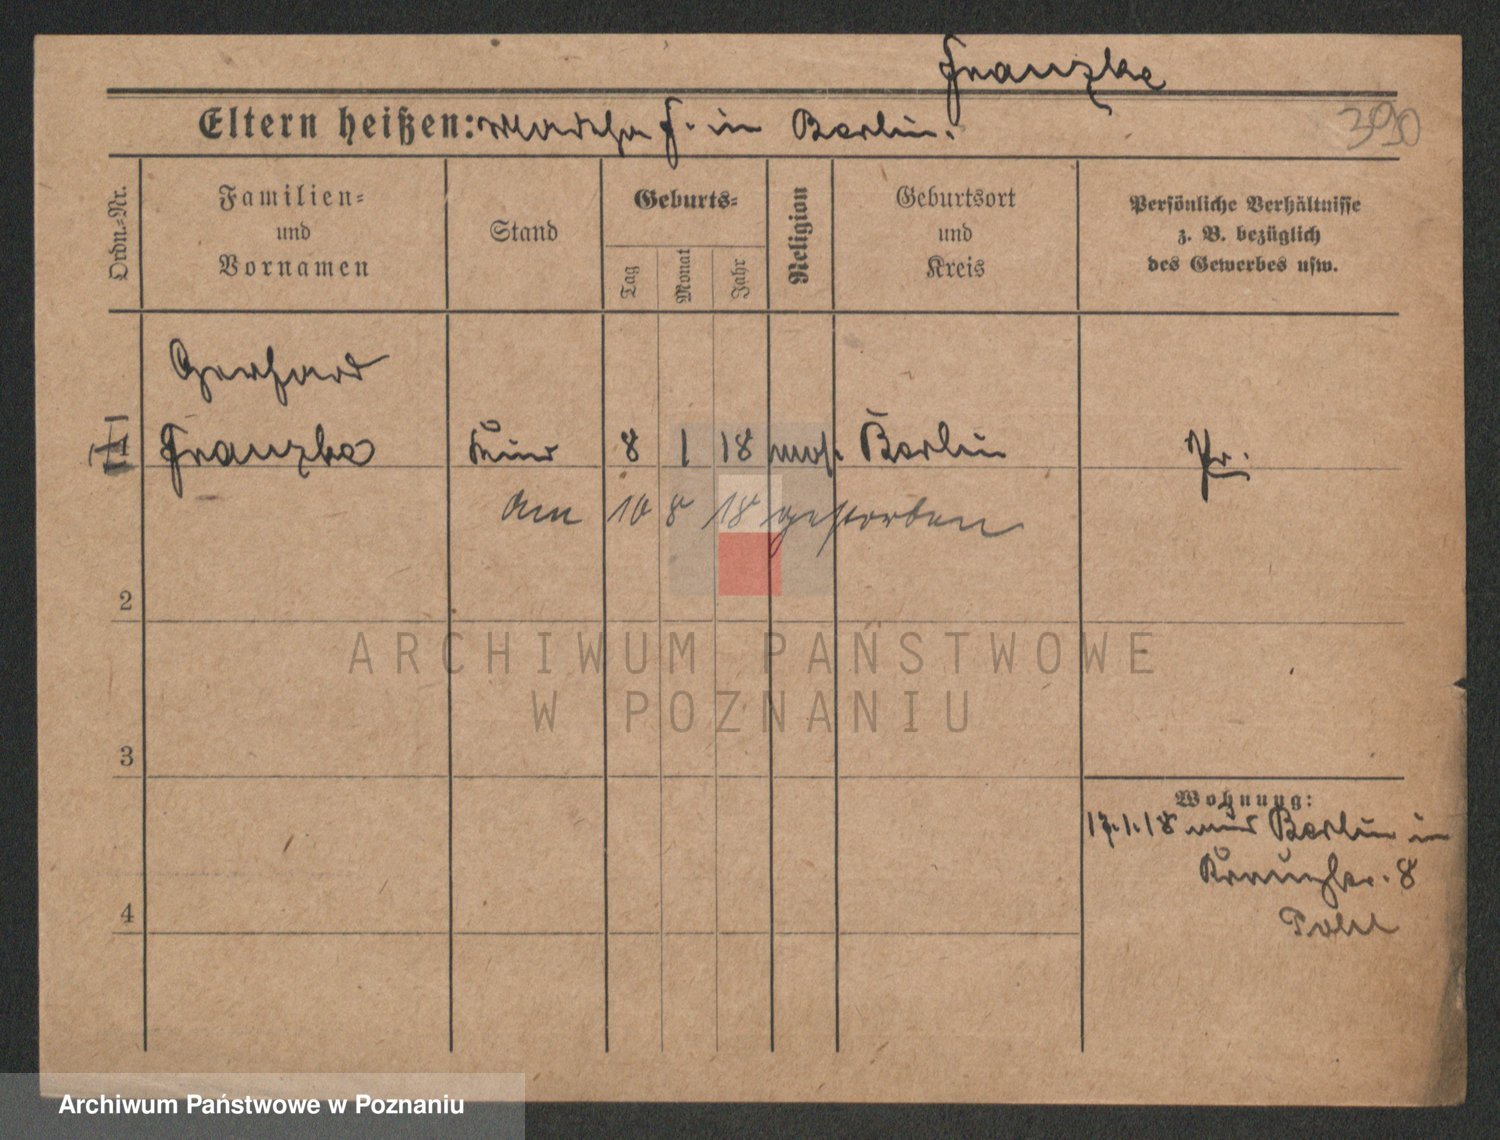 Franzke
Eltern heißen: Martha F. in Berlin.
390
Ordn.-Nr.
Familien-
und
Vornamen
Stand
Geburts-
Tag
Monat
Jahr
Religion
Geburtsort
und
Kreis
Persönliche Verhältnisse
z. B. bezüglich
des Gewerbes usw.
Gerhard
1 Franzke Kind 8 1 18 mos. Berlin Pr.
Am 10 8 18 gestorben
2
ARCHIWUM PAŃSTWOWE
W POZNANIU
3
Wohnung:
17.1.18 aus Berlin in
8
Pohl
4
Archiwum Państwowe w Poznaniu